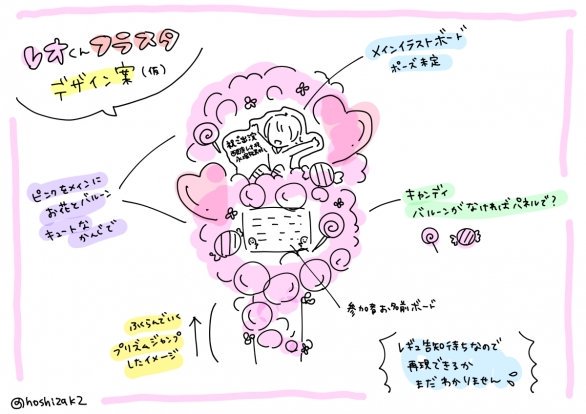 レオくんフラスタ
デザイン案(仮)
メインイラストボード
ポーズ未定
祝ご出演
ピンクをメインに
お花とバルーン
キュートな
かんじで
キャンディ
バルーンがなければパネルで?
参加者お名前ボード
ふくらんでいく
プリズムジャンプ
したイメージ
レギュ告知待ちなので
再現できるか
まだわかりません
@hoshizak2